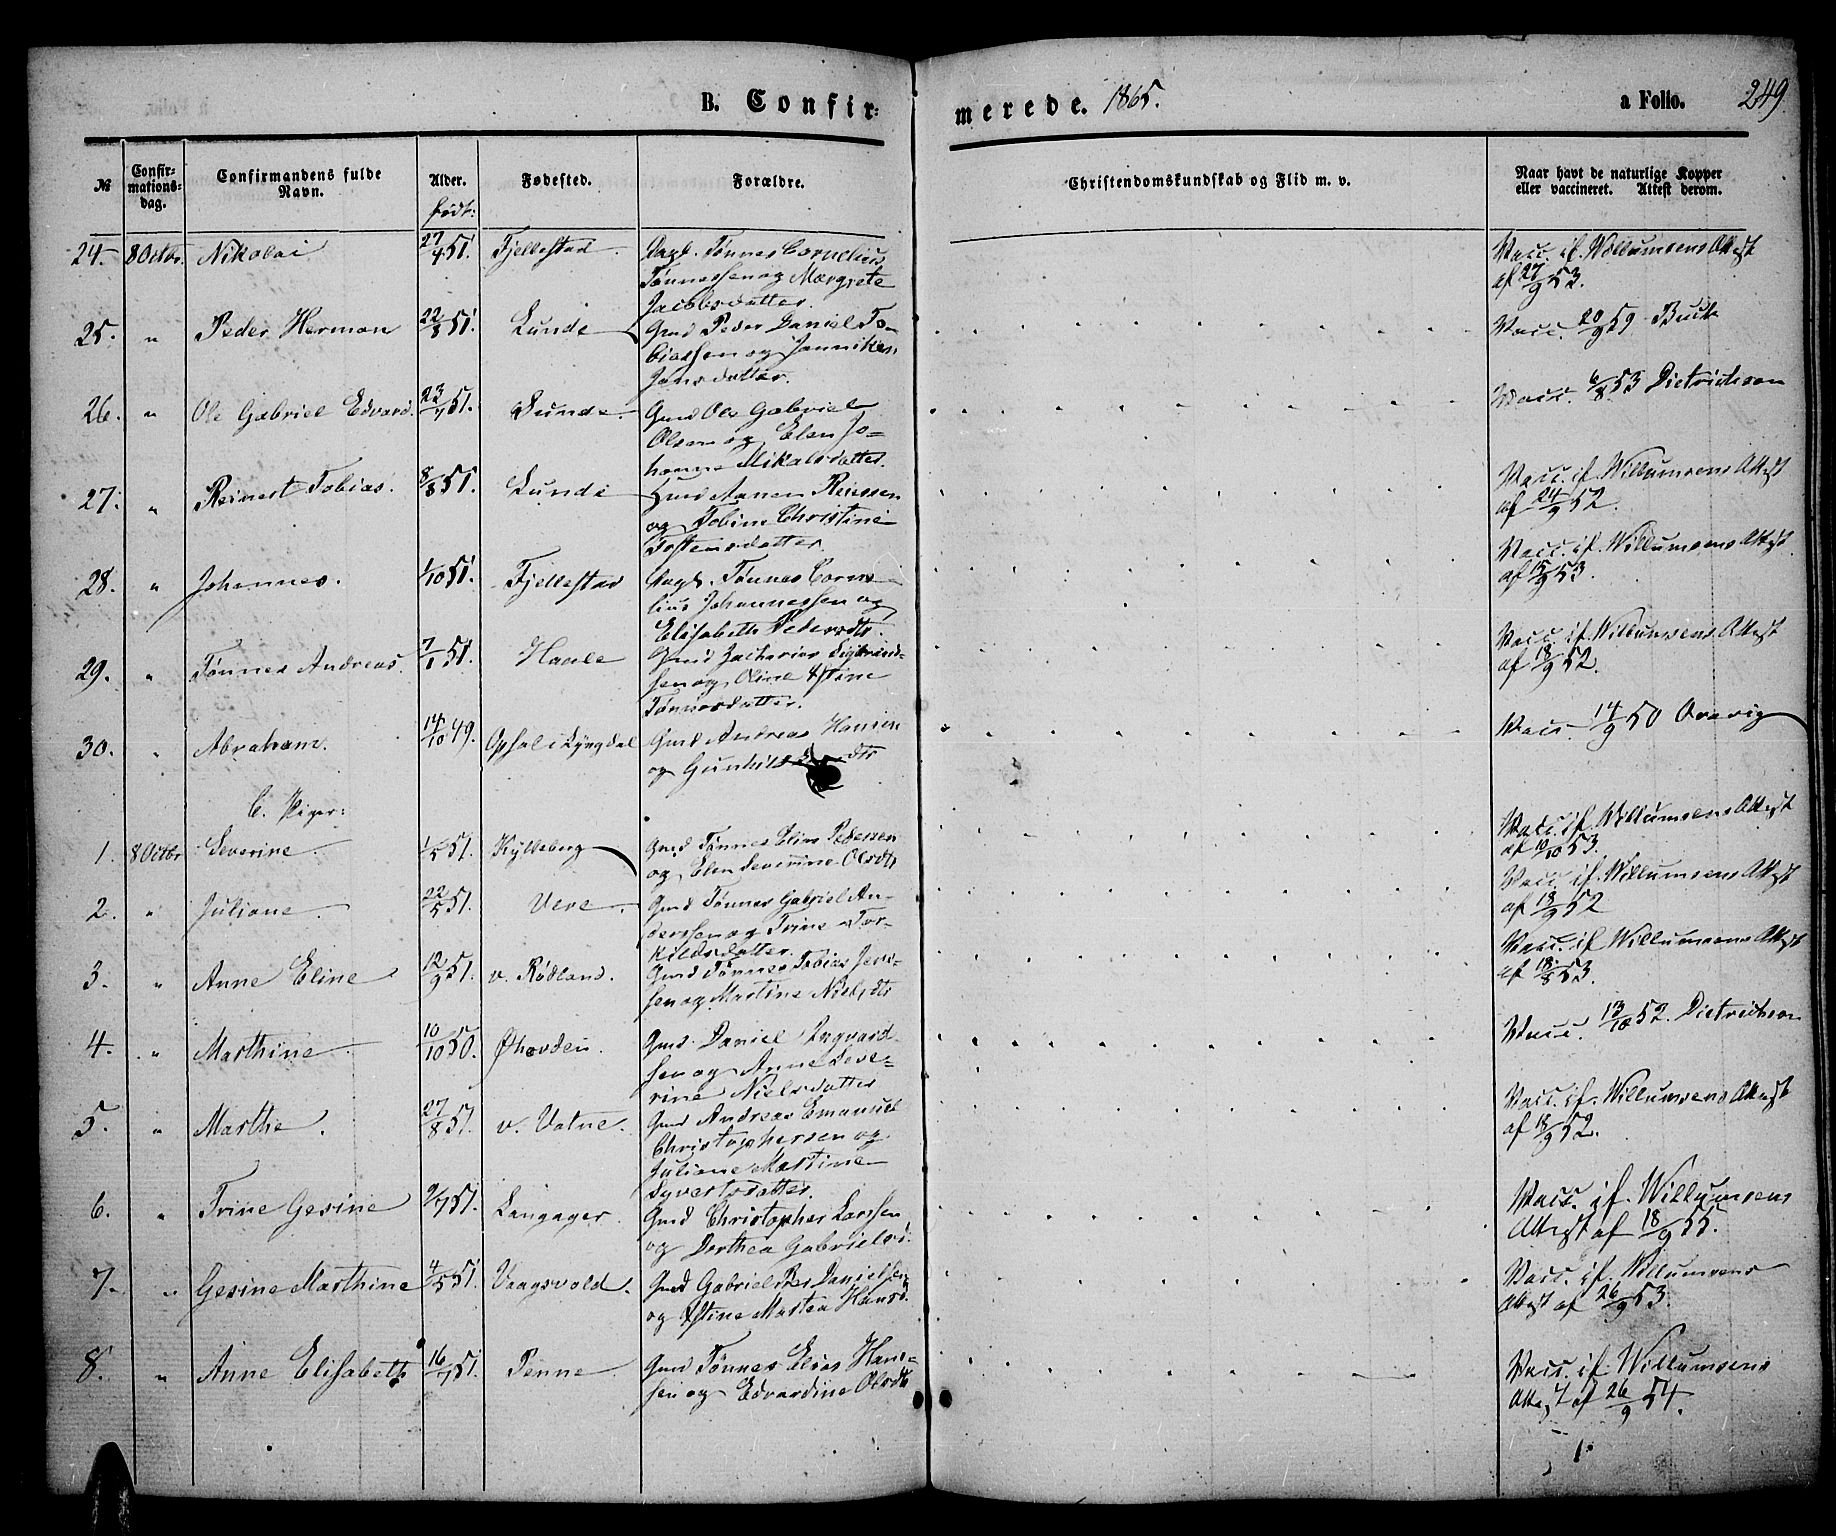 B. Confir-
merede. 1865.
a Folio. 249
№
Confir-
mations-
dag.
Confirmandens fulde
Navn.
Alder.
født:
Fødested.
Forældre.
Christendomskundskab og Flid m. v.
Naar havt de naturlige Kopper
eller vaccineret. Attest derom.
24. 8 Octbr. Nikolai 27/4 51. Fjellestad. Dagl. Tønnes Cornelius
Tønnessen og Margrete
Jacobsdatter.
Vacc. if. Willumsens Attest
af 27/9 53.
25. " Peder Herman 22/8 51. Lunde Gmd Peder Daniel To-
biassen og Janniken
Jonsdatter.
Vacc. 20/9 59 Buch
26. " Ole Gabriel Edvard. 23/7 51. Lunde. Gmd Ole Gabriel
Olsen og Elen Jo-
hanne Mikalsdatter.
Vacc. 6/8 53 Dietrichson
27. " Reinert Tobias. 8/8 51. Lunde Gmd Aanen Reiersen
og Tobine Christine
Tostensdatter.
Vacc. if. Willumsens Attest
af 24/9 52.
28. " Johannes. 1/10 51. Fjellestad Dagl. Tønnes Corne-
lius Johannessen og
Elisabeth Pedersdtr.
Vacc. if. Willumsens Attest
af 15/9 53.
29. " Tønnes Andreas. 7/1 51. Haale Gmd Zacharias Sigbrand-
sen og Oline Stine
Tønnesdatter.
Vacc. if. Willumsens Attest
af 18/9 52.
30. " Abraham. 14/10 49. Opsal i Lyngdal Gmd Andreas Hansen
og Gunhild dtr
Vacc. 14/9 50
C. Piger:
1. 8 Octbr Severine 1/5 51. Kylleberg Gmd Tønnes Elias Pedersen
og Elen Severine Olsdtr
Vacc. if. Willumsens Attest
af 10/10 53.
2. " Juliane. 22/5 51. Vere. Gmd Tønnes Gabriel An-
derssen og Trine Tor-
kildsdatter.
Vacc. if. Willumsens Attest
af 18/9 52
3. " Anne Eline 12/9 51. v. Rødland. Gmd Tønnes Tobias Jens-
sen og Martine Nielsdtr
Vacc. if Willumsens Attest
af 18/8 53.
4. " Marthine. 10/10 50. Øhovden. Gmd. Daniel Ingvard-
sen og Anne Seve-
rine Nielsdatter
Vacc. 13/10 52. Dietrichson
5. " Marthe. 27/8 51. v. Vatne. Gmd Andreas Emanuel
Christophersen og
Juliane Martine
Syvertsdatter.
Vacc. if. Willumsens Attest
af 18/9 52.
6. " Trine Gesine 9/7 51. Langager. Gmd Christopher Larssen
og Dorthea Gabrielsd.
Vacc. if. Willumsens
Attest af 18/9 55.
7. " Gesine Marthine 4/5 51. Vaagsvold. Gmd Gabriel Danielsen
og Stine Martea Hansd.
Vacc. if. Willumsens
Attest af 26/9 53.
8. " Anne Elisabeth 16/7 51. Penne. Gmd Tønnes Elias Han-
sen og Edvardine Olsdtr
Vacc. if. Willumsens
Attest af 26/9 54.